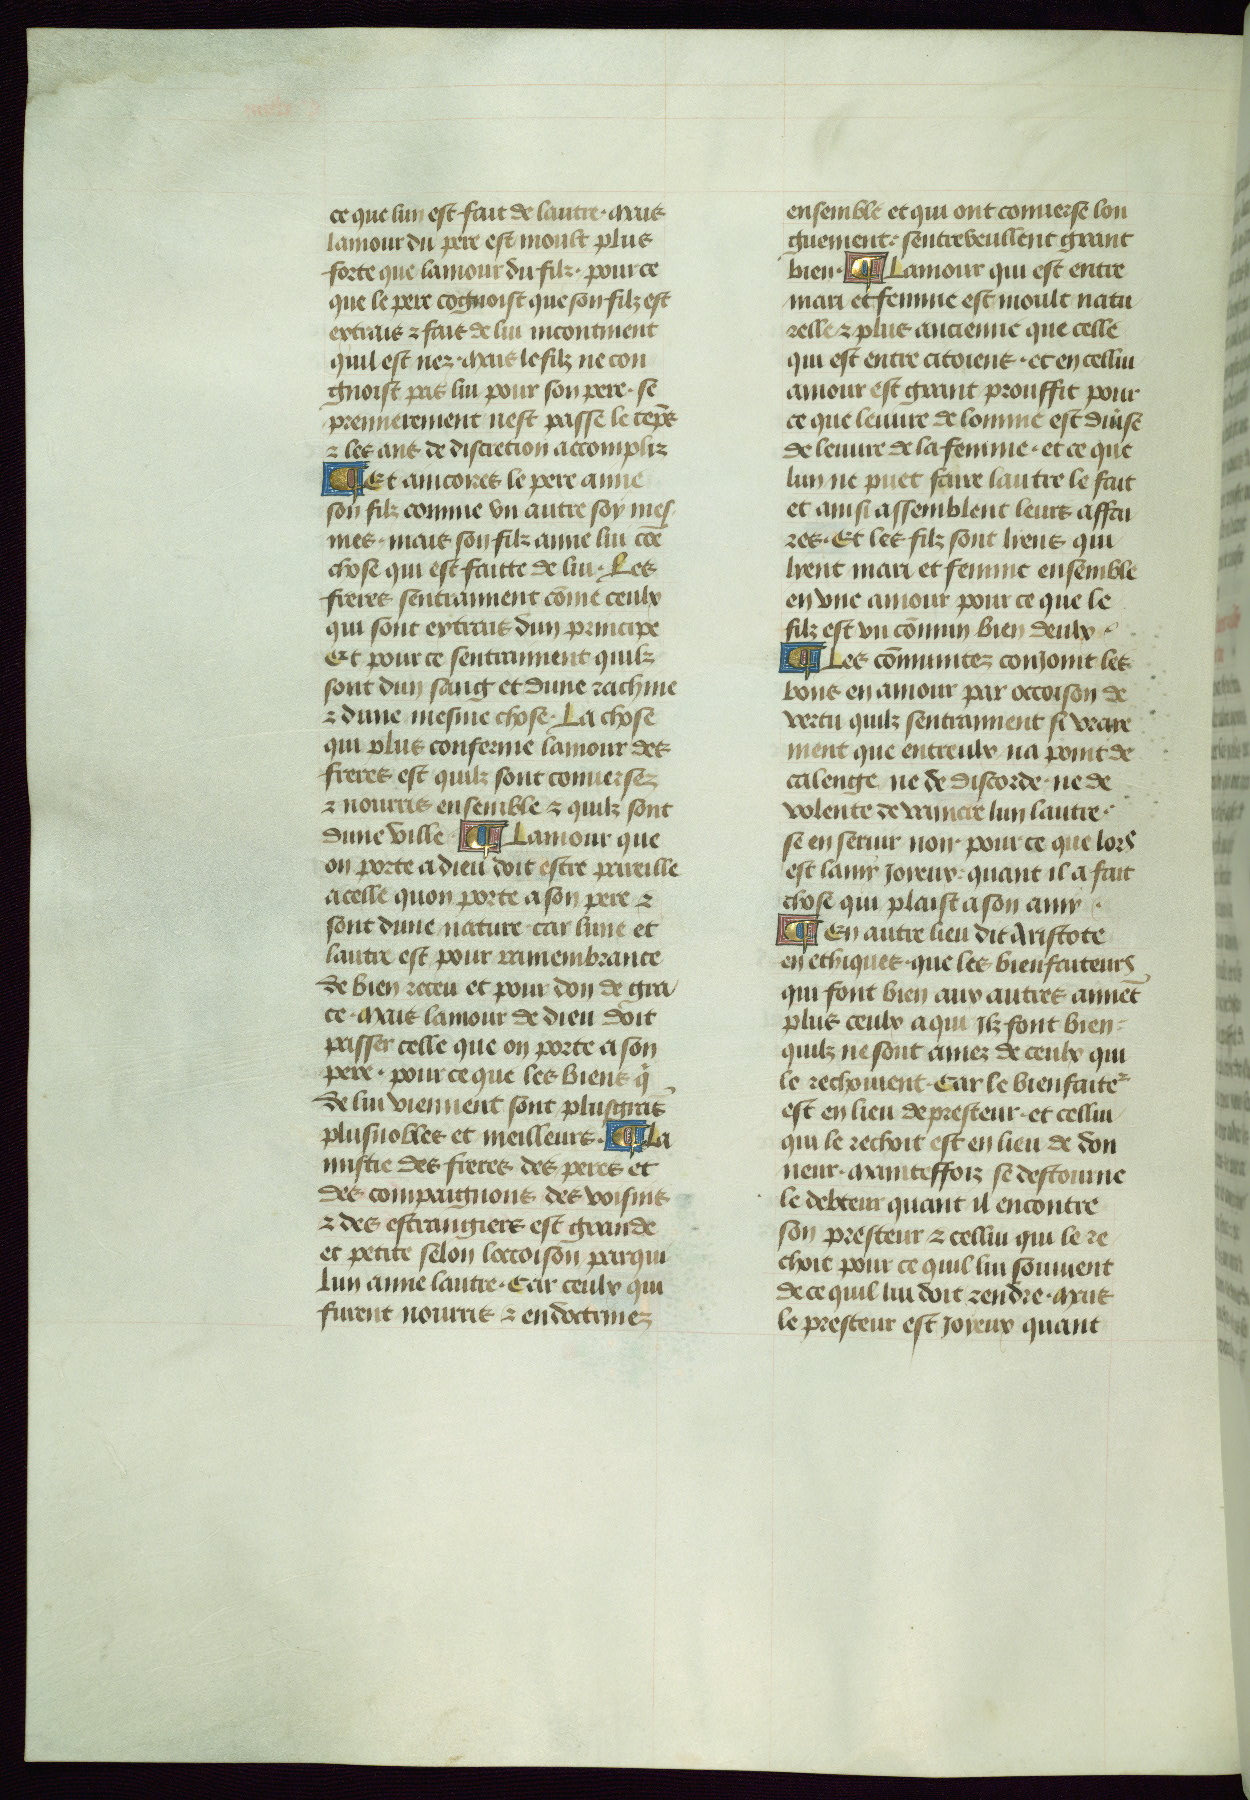 ce que lun est fait de lautre. Mais
lamour du pere est moult plus
forte que lamour du filz. pour ce
que le pere cognoist que son filz est
extrais ⁊ fais de lui incontinent
quil est nez. Mais le filz ne con
gnoist pas lui pour son pere. se
premierement nest passe le tēps
⁊ les ans de discretion accompliz
¶ Et ancores le pere aime
son filz comme vn autre soy mes
mes. mais son filz aime lui cōe
chose qui est faitte de lui. Les
freres sentraiment cōme ceulx
qui sont extrais dun principe
Et pour ce sentraiment quilz
sont dun sang et dune rachine
⁊ dune mesme chose. La chose
qui plus conferme lamour des
freres est quilz sont conuersez
⁊ nourris ensemble ⁊ quilz sont
dune ville ¶ Lamour que
on porte a dieu doit estre pareille
a celle quon porte a son pere ⁊
sont dune nature car lune et
lautre est pour ramembrance
de bien receu et pour don de gra
ce. Mais lamour de dieu doit
passer celle que on porte a son
pere. pour ce que les biens q̄
de lui viennent sont plusgrās
plusnobles et meilleurs. ¶ La
mistie des freres des peres et
des compaignons des voisins
⁊ des estrangiers est grande
et petite selon loccoison parqui
lun aime lautre. Car ceulx qui
furent nourris ⁊ endoctrinez
ensemble et qui ont conuerse lon
guement. sentreveullent grant
bien. ¶ Lamour qui est entre
mari et femme est moult natu
relle ⁊ plus ancienne que celle
qui est entre citoiens. et en cellui
amour est grant prouffit pour
ce que leuure de lomme est diuise
de leuure de la femme. et ce que
lun ne puet faire lautre le fait
et ainsi assemblent leurs affai
res. Et les filz sont liens qui
lient mari et femme ensemble
en vne amour pour ce que le
filz est vn cōmun bien deulx
¶ Les cōmunitez conjoint les
bons en amour par occoison de
vertu quilz sentraiment si vraie
ment que entreulx na point de
calenge ne de discorde. ne de
volente de vaincre lun lautre.
se en seruir non. pour ce que lors
est lamy joyeux. quant il a fait
chose qui plaist a son amy.
¶ En autre lieu dit Aristote
en ethiques. que les bienfaiteurs
qui font bien aux autres aimēt
plus ceulx a qui ilz font bien.
quilz ne sont amez de ceulx qui
le rechoiuent. Car le bienfaite͛
est en lieu de presteur. et cellui
qui le rechoit est en lieu de don
neur. Mainteffoiz se destourne
le debteur quant il encontre
son presteur ⁊ cellui qui le re
choit pour ce quil lui souuient
de ce quil lui doit rendre. Mais
le presteur est joyeux quant